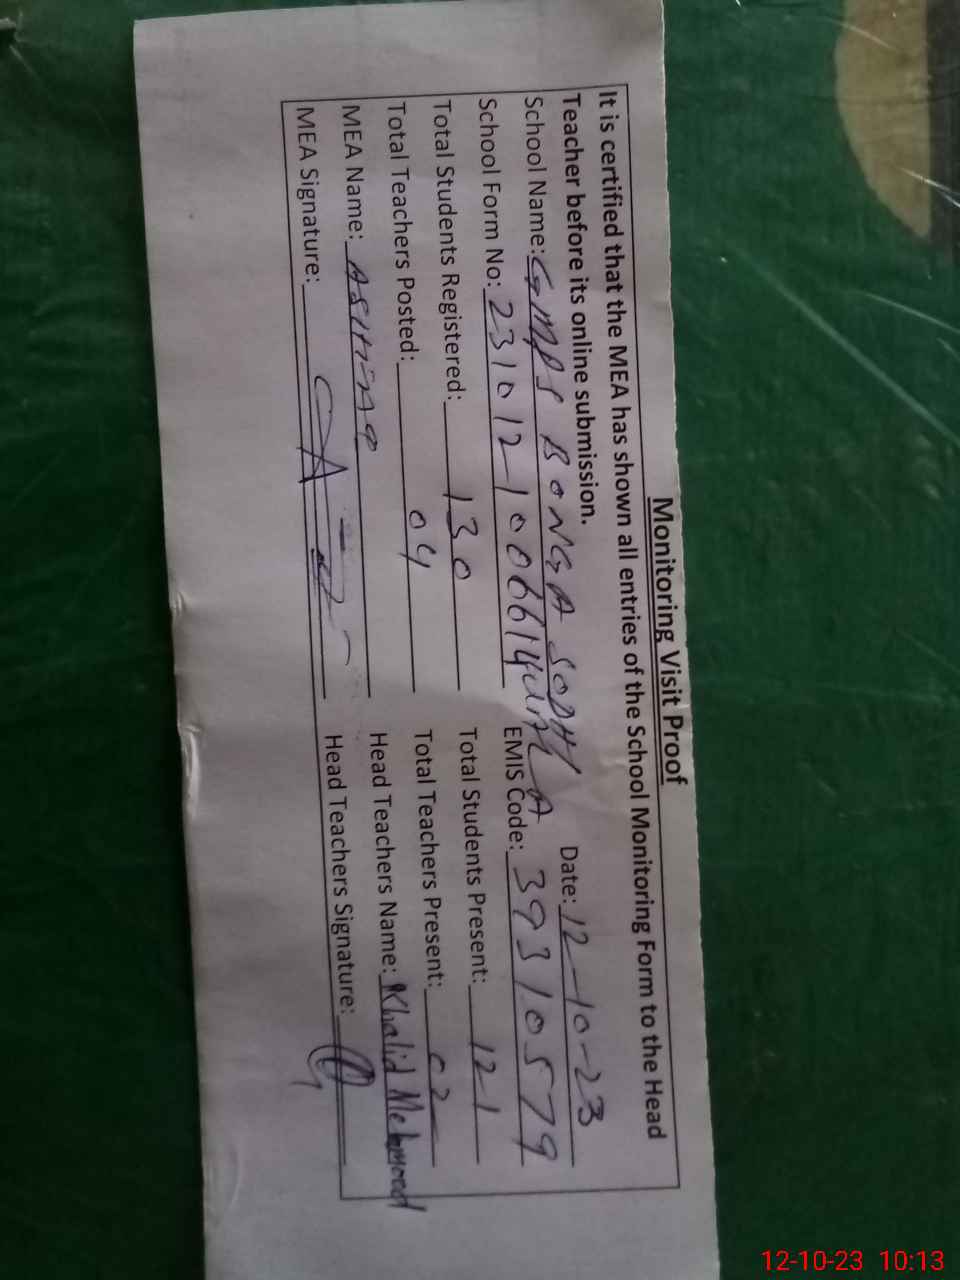 Monitoring Visit Proof
It is certified that the MEA has shown all entries of the School Monitoring Form to the Head
Teacher before its online submission.
School Name: GMPS BONGA Date: 12-10-23
School Form No: 231012-1006614 EMIS Code: 39310579
Total Students Registered: 130 Total Students Present: 121
Total Teachers Posted: 04 Total Teachers Present: 02
MEA Name: Head Teachers Name: Khalid Mehmood
MEA Signature: Head Teachers Signature:
12-10-23 10:13